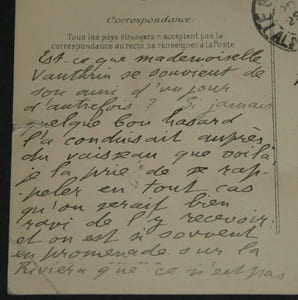 Correspondance:
Tous les pays étrangers n'acceptent pas la
correspondance au recto, se renseigner à la Poste
Est-ce que mademoiselle
Vauthrin se souvient de
son ami d'un jour
d'autrefois ? Si jamais
quelque bon hasard
l'a conduisait auprès
du vaisseau que voilà
je la prie de se rap-
peler en tout cas
qu'on serait bien
ravi de l'y recevoir,
et on est si souvent
en promenade sur la
Riviera que ce n'est pas